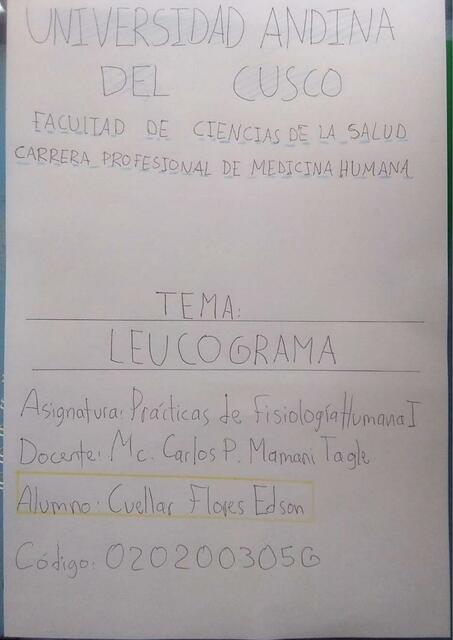 UNIVERSIDAD ANDINA
DEL CUSCO
FACULTAD DE CIENCIAS DE LA SALUD
CARRERA PROFESIONAL DE MEDICINA HUMANA
TEMA:
LEUCOGRAMA
Asignatura: Prácticas de Fisiología Humana I
Docente: Mc. Carlos P. Mamani Tagle
Alumno: Cuellar Flores Edson
Código: 020200305G